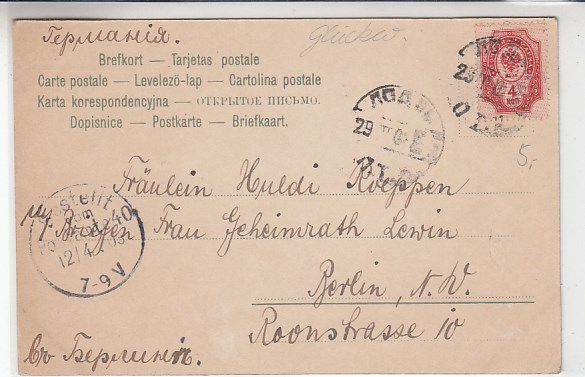 Германія.
Glückw.
Brefkort — Tarjetas postale
Carte postale — Levelező-lap — Cartolina postale
Karta korespondencyjna — ОТКРЫТОЕ ПИСЬМО.
Dopisnice — Postkarte — Briefkaart.
4
КОП
ЛОДЗЬ
29
5.-
Fräulein Huldi Koeppen
Adressen Frau Geheimrath Lewin
Bestellt
12/4
7-9 V
Berlin, N.W.
Roonstrasse 10
Въ Берлинѣ.